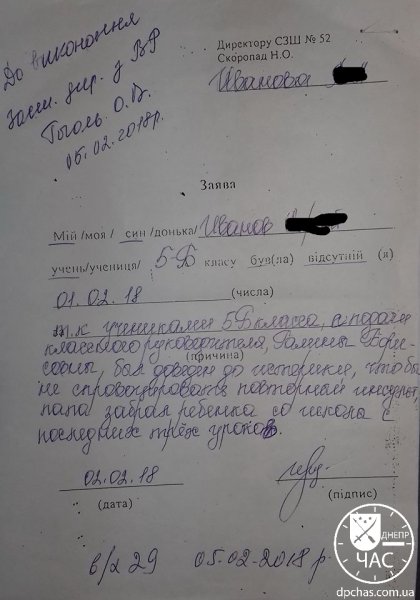 До виконання
Заст. дир. з ВР
Гоголь О.В.
05.02.2018р.
Директору СЗШ № 52
Скоропад Н.О.
Иванова
Заява
Мій /моя / син /донька/ Иванов
учень/учениця/ 5-Б класу був(ла) відсутній (я)
01.02.18 (числа)
т.к учениками 5Б класса, с подачи
классного руководителя, Галины Борис-
(причина)
совны, был доведен до истерики, чтобы
не спровоцировать повторный инсульт,
папа забрал ребенка со школы с
последних трёх уроков.
02.02.18
(дата)
(підпис)
в/х 29 05-02-2018 р
ДНЕПР
ЧАС
dpchas.com.ua